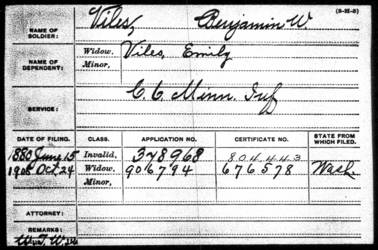 (3-25-8)
NAME OF SOLDIER: Viles, Benjamin W.
NAME OF DEPENDENT: Widow, Viles, Emily
Minor,
SERVICE: C. 6. Minn. Inf
DATE OF FILING. CLASS. APPLICATION NO. CERTIFICATE NO. STATE FROM WHICH FILED.
1880 June 15 Invalid, 378968 804.443
1908 Oct 24 Widow, 906794 676578 Wash.
Minor,
ATTORNEY:
REMARKS: